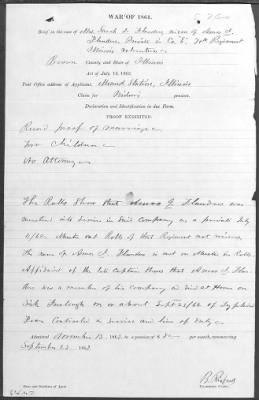 WAR OF 1861.
Brief in the case of Mrs. Sarah L. Flanders widow of Amos G.
Flanders Private in Co "E" 70th Regiment
Illinois volunteers
Brown County and State of Illinois
Act of July 14, 1862.
Post Office address of Applicant, Mound Station, Illinois
Claim for Widow's pension.
Declaration and Identification in due Form.
PROOF EXHIBITED.
Record proof of marriage
Two Children
No Attorney
The Rolls show that Amos G. Flanders was
mustered into Service in said Company as a private July
4/62. Muster out Rolls of that Regiment not
the name of Amos G. Flanders is not on Muster in Rolls
Affidavit of the late Captain shows that Amos G. Flan
ders was a member of his company and died at Home on
Sick Furlough on or about Sept 23/62 of Typhoid
Fever Contracted in service and line of duty
Admitted November 13, 1863, to a pension of 8 per month, commencing
September 23, 1862
Name and Residence of Agent
Examining Clerk.